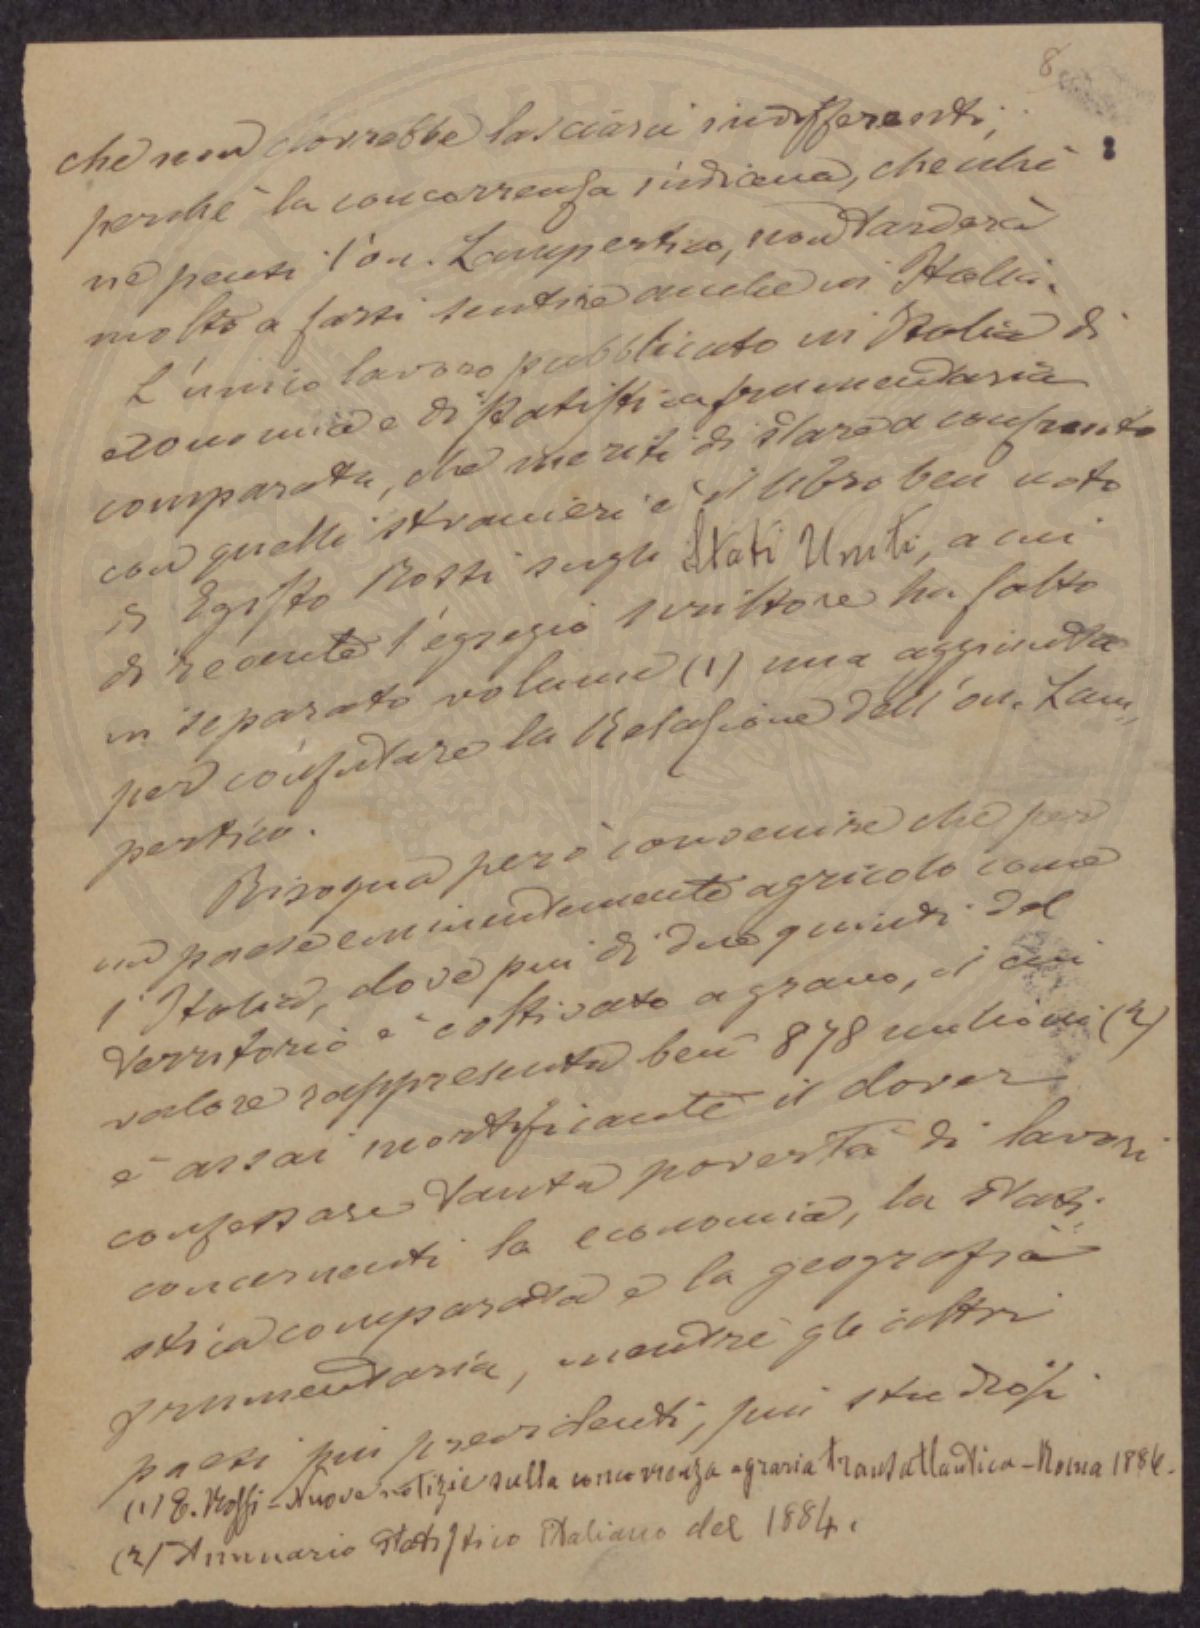 8
che non dovrebbe lasciarci indifferenti,
perchè la concorrenza indiana, checchè
ne pensi l'on. Lampertico, non tarderà
molto a farsi sentire anche in Italia.
L'unico lavoro pubblicato in Italia di
economia e di statistica frumentaria
comparata, che meriti di stare a confronto
con quelli stranieri è il libro ben noto
di Egisto Rossi sugli Stati Uniti, a cui
di recente l'egregio scrittore ha fatto
in separato volume (1) una aggiunta
per confutare la Relazione dell'on. Lam„
pertico.
Bisogna però convenire che per
un paese eminentemente agricolo come
l'Italia, dove più di due quinti del
territorio è coltivato a grano, il cui
valore rappresenta ben 878 milioni (2)
è assai mortificante il dover
confessare tanta povertà di lavori
concernenti la economia, la stati-
stica comparata e la geografia
frumentaria, mentre gli altri
paesi più previdenti, più studiosi
(1) E. Rossi - Nuove notizie sulla concorrenza agraria transatlantica - Roma 1884.
(2) Annuario Statistico Italiano del 1884.